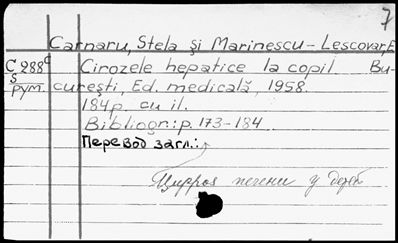 7
Carnaru, Stela și Marinescu-Lescovar, E
C 288c Cirozele hepatice la copil. Bu-
S
рум. curești, Ed. medicală, 1958.
184 p. cu il.
Bibliogr.: p. 173-184
Перевод загл.:
Цирроз печени у детей